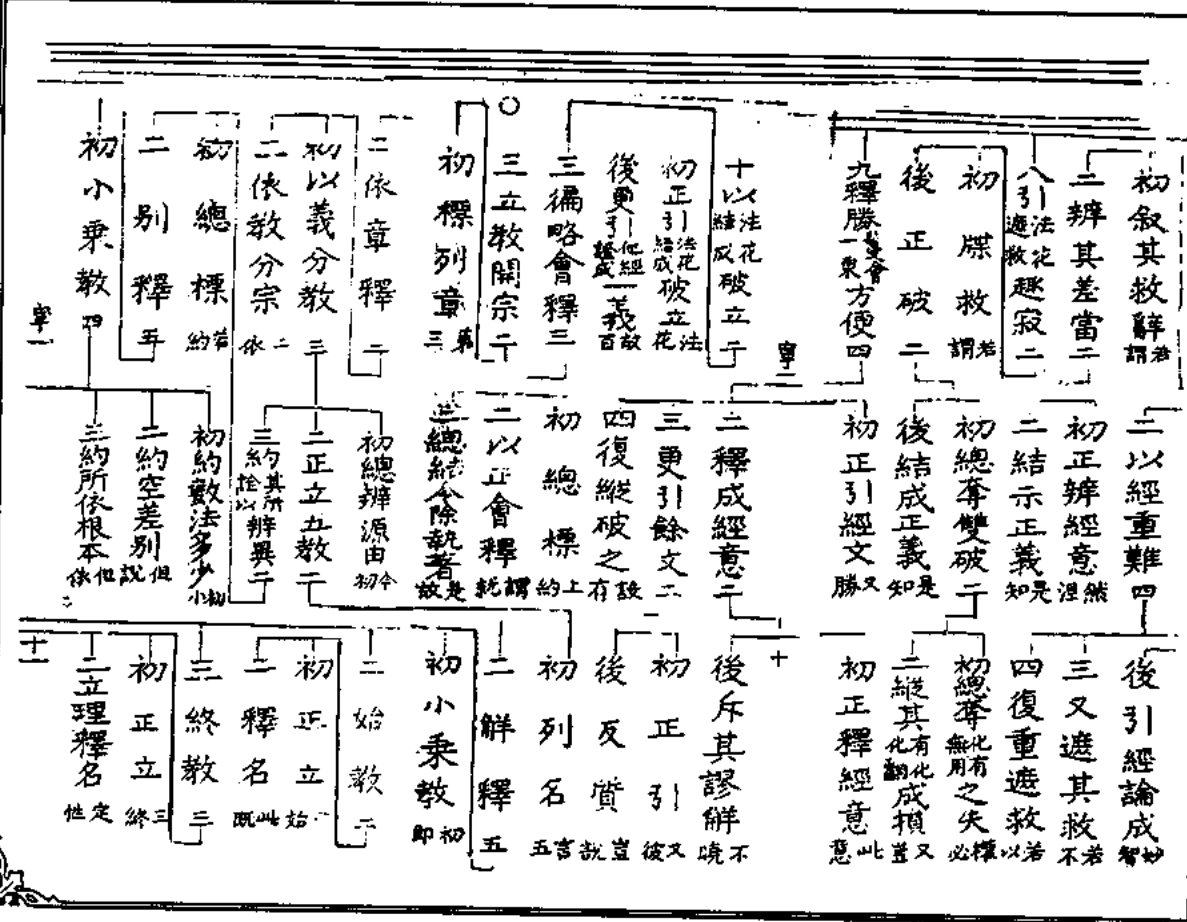 初叙其救辭 若謂
二辨其差當 二
八引法花遮救趣寂 二
初牒救 若謂
後正破 二
九釋勝鬘會一乘方便 四
十以法花結成破立 二
初正引法花結成破立 法花
後更引他經證成一義 故百
三徧略會釋 三
三立教開宗 二
初標列章 三
二依章釋 二
初以義分教 三
二依教分宗 二依
初總標 若約
二別釋 五
初小乘教 四
寧一
寧二
二以經重難 四
初正辨經意 然涅
二結示正義 是知
初總奪雙破 二
後結成正義 是知
初正引經文 又勝
二釋成經意 二
三更引餘文 二
四復縱破之 設有
初總標 上約
二以正會釋 謂就
三總結令除執著 是故
初總辨源由 今初
二正立五教 二
三約其所詮以辨異 二
初約數法多少 初小
二約空差別 但說
三約所依根本 但依
後引經論成 妙智
三又遮其救 若不
四復重遮救 若以
初總奪化有無用之失 權必
二縱其有化化翻成損 又豈
初正釋經意 此惡
十
後斥其謬解 不曉
初正引 又彼
後反質 豈說
初列名 言五
二解釋 五
初小乘教 初即
二始教 二
初正立 二始
二釋名 此既
三終教 三
初正立 三終
二立理釋名 定性
十一